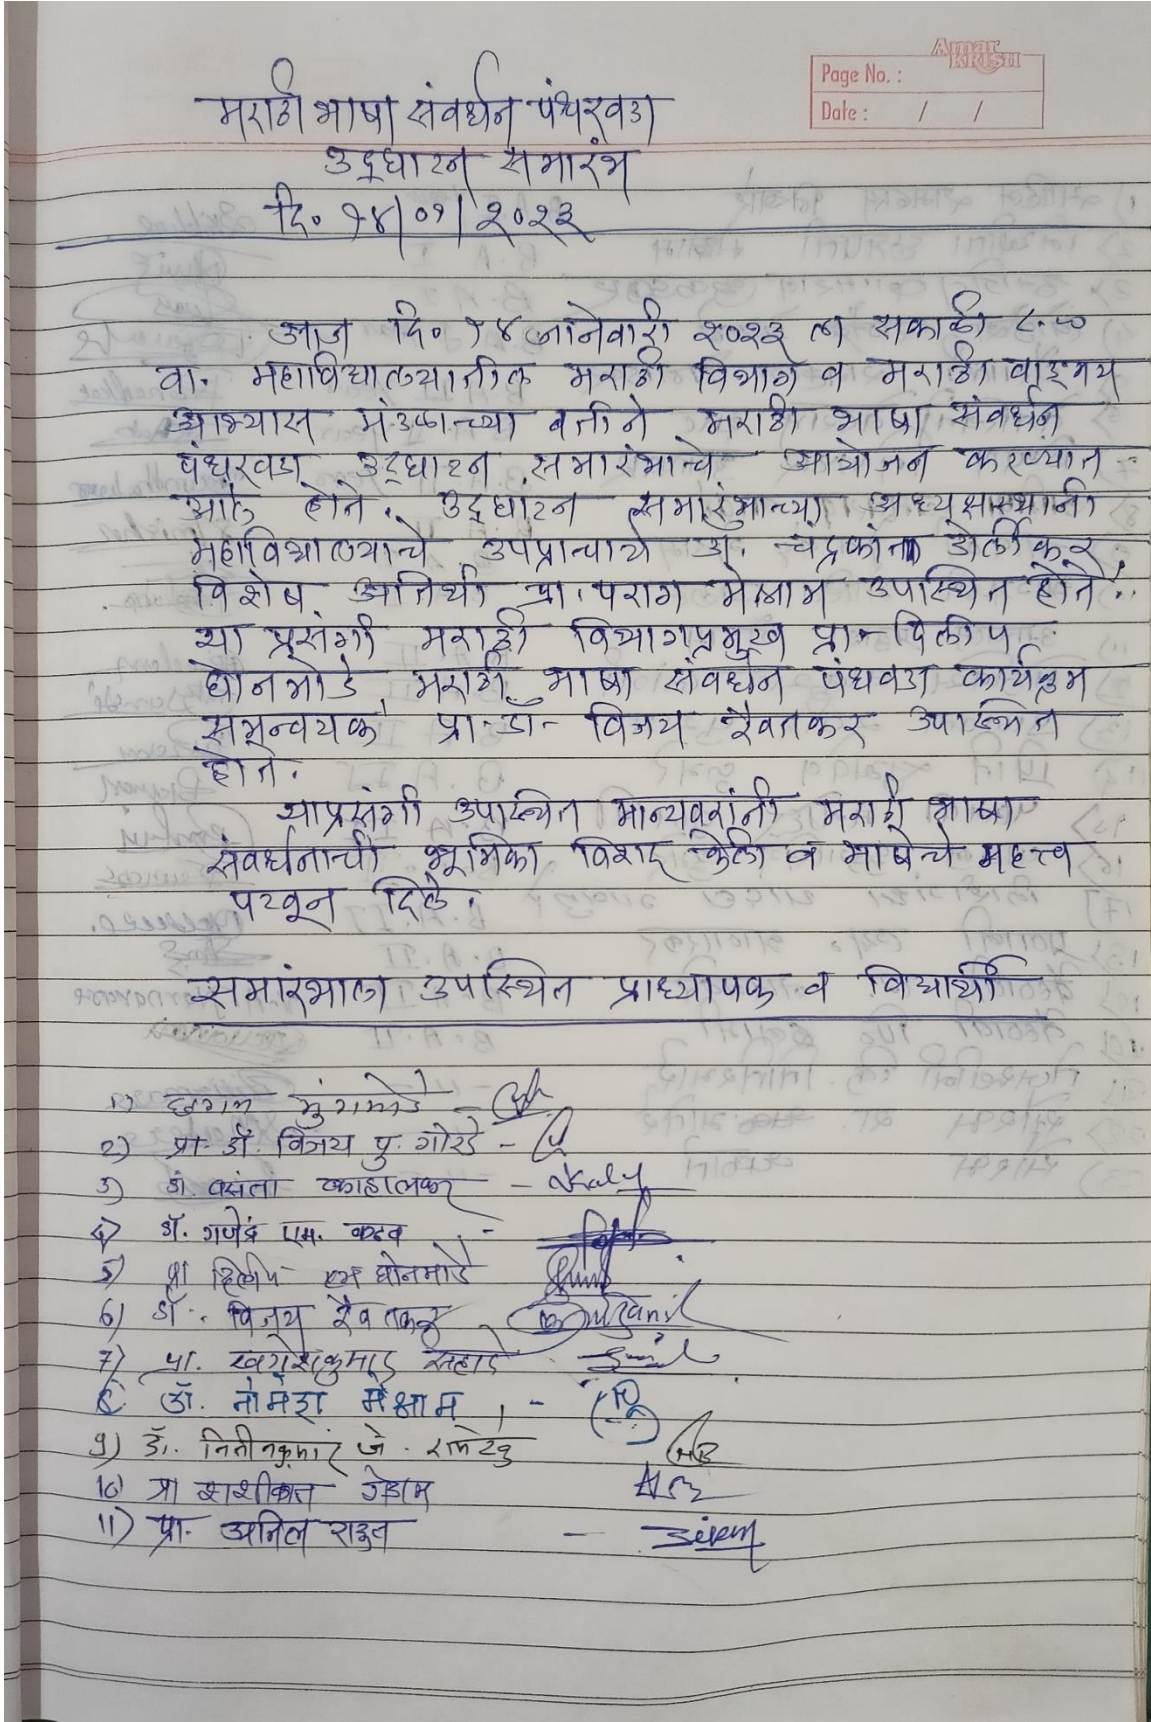 Amar
KRISH
Page No. :
Date : / /
मराठी भाषा संवर्धन पंधरवडा
उद्घाटन समारंभ
दि० १४/०१/२०२३
आज दि० १४ जानेवारी २०२३ ला सकाळी ८.००
वा. महाविद्यालयातील मराठी विभाग व मराठी वाङ्मय
अभ्यास मंडळाच्या वतीने मराठी भाषा संवर्धन
पंधरवडा उद्घाटन समारंभाचे आयोजन करण्यात
आले होते. उद्घाटन समारंभाच्या अध्यक्षस्थानी
महाविद्यालयाचे उपप्राचार्य डॉ. चंद्रकांत डोर्लीकर
विशेष अतिथी प्रा. पराग मेश्राम उपस्थित होते.
या प्रसंगी मराठी विभागप्रमुख प्रा. दिलीप
घोनमोडे मराठी भाषा संवर्धन पंधवडा कार्यक्रम
समन्वयक प्रा. डॉ. विजय रैवतकर उपस्थित
होते.
याप्रसंगी उपस्थित मान्यवरांनी मराठी भाषा
संवर्धनाची भूमिका विशद केली व भाषेचे महत्त्व
पटवून दिले.
समारंभाला उपस्थित प्राध्यापक व विद्यार्थी
1) छगन मुंगमोडे -
2) प्रा. डॉ. विजय पु. गोरडे -
3) डॉ. वसंता कहालकर -
4) डॉ. गजेंद्र एम. कढव -
5) प्रा दिलीप एम घोनमोडे
6) डॉ. विजय रैवतकर
7) प्रा. खगेशकुमार रहाटे
8 डॉ. तोमेश मेश्राम, -
9) डॉ. नितीनकुमार जे. रामटेके
10) प्रा शशीकांत गेडाम
11) प्रा. अनिल राऊत -